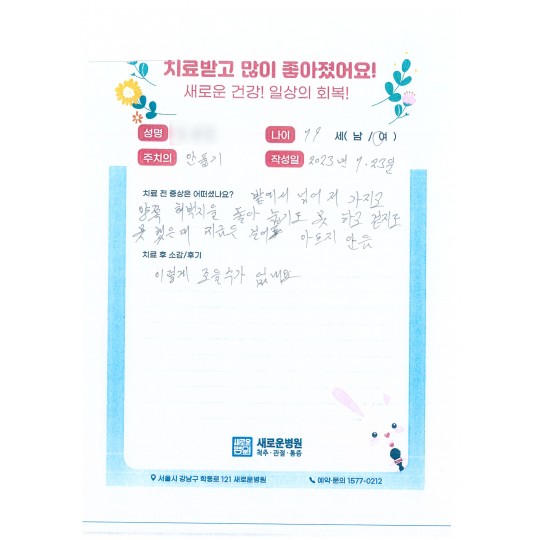 치료받고 많이 좋아졌어요!
새로운 건강! 일상의 회복!
성명
나이 79 세( 남 / 여 )
주치의 안풍기
작성일 2023년 9. 23일
치료 전 증상은 어떠셨나요? 밭에서 넘어 져 가지고
양쪽 허벅지을 돌아 눕기도 못 하고 걷지도
못 했는데 지금은 걸어도 아프지 안음
치료 후 소감/후기
이렇게 조을수가 없네요
새로운병원
새로운병원
척추·관절·통증
서울시 강남구 학동로 121 새로운병원
예약·문의 1577-0212